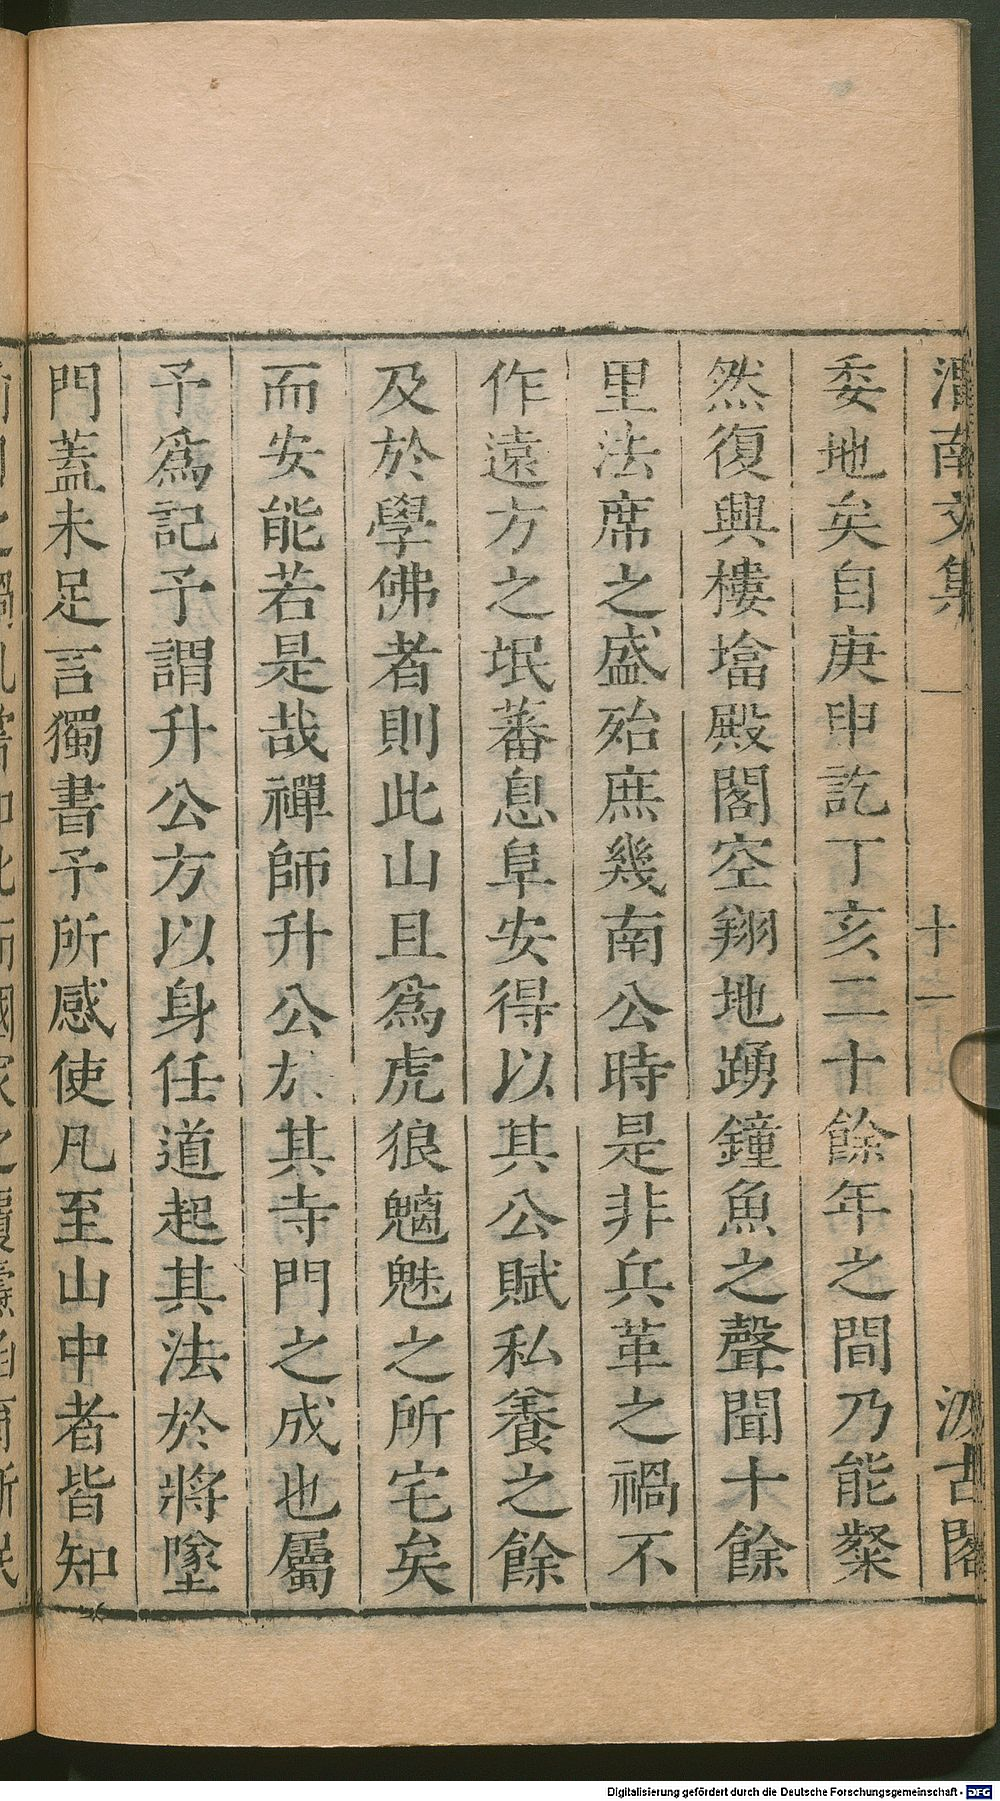 渭南文集 十一 汲古閣
委地矣自庚申訖丁亥二十餘年之間乃能粲
然復興樓㙮殿閣空翔地踴鐘魚之聲聞十餘
里法席之盛殆庶幾南公時是非兵革之禍不
作遠方之氓蕃息阜安得以其公賦私養之餘
及於學佛者則此山且爲虎狼魑魅之所宅矣
而安能若是哉禪師升公於其寺門之成也屬
予爲記予謂升公方以身任道起其法於將墜
門蓋未足言獨書予所感使凡至山中者皆知
Digitalisierung gefördert durch die Deutsche Forschungsgemeinschaft - DFG